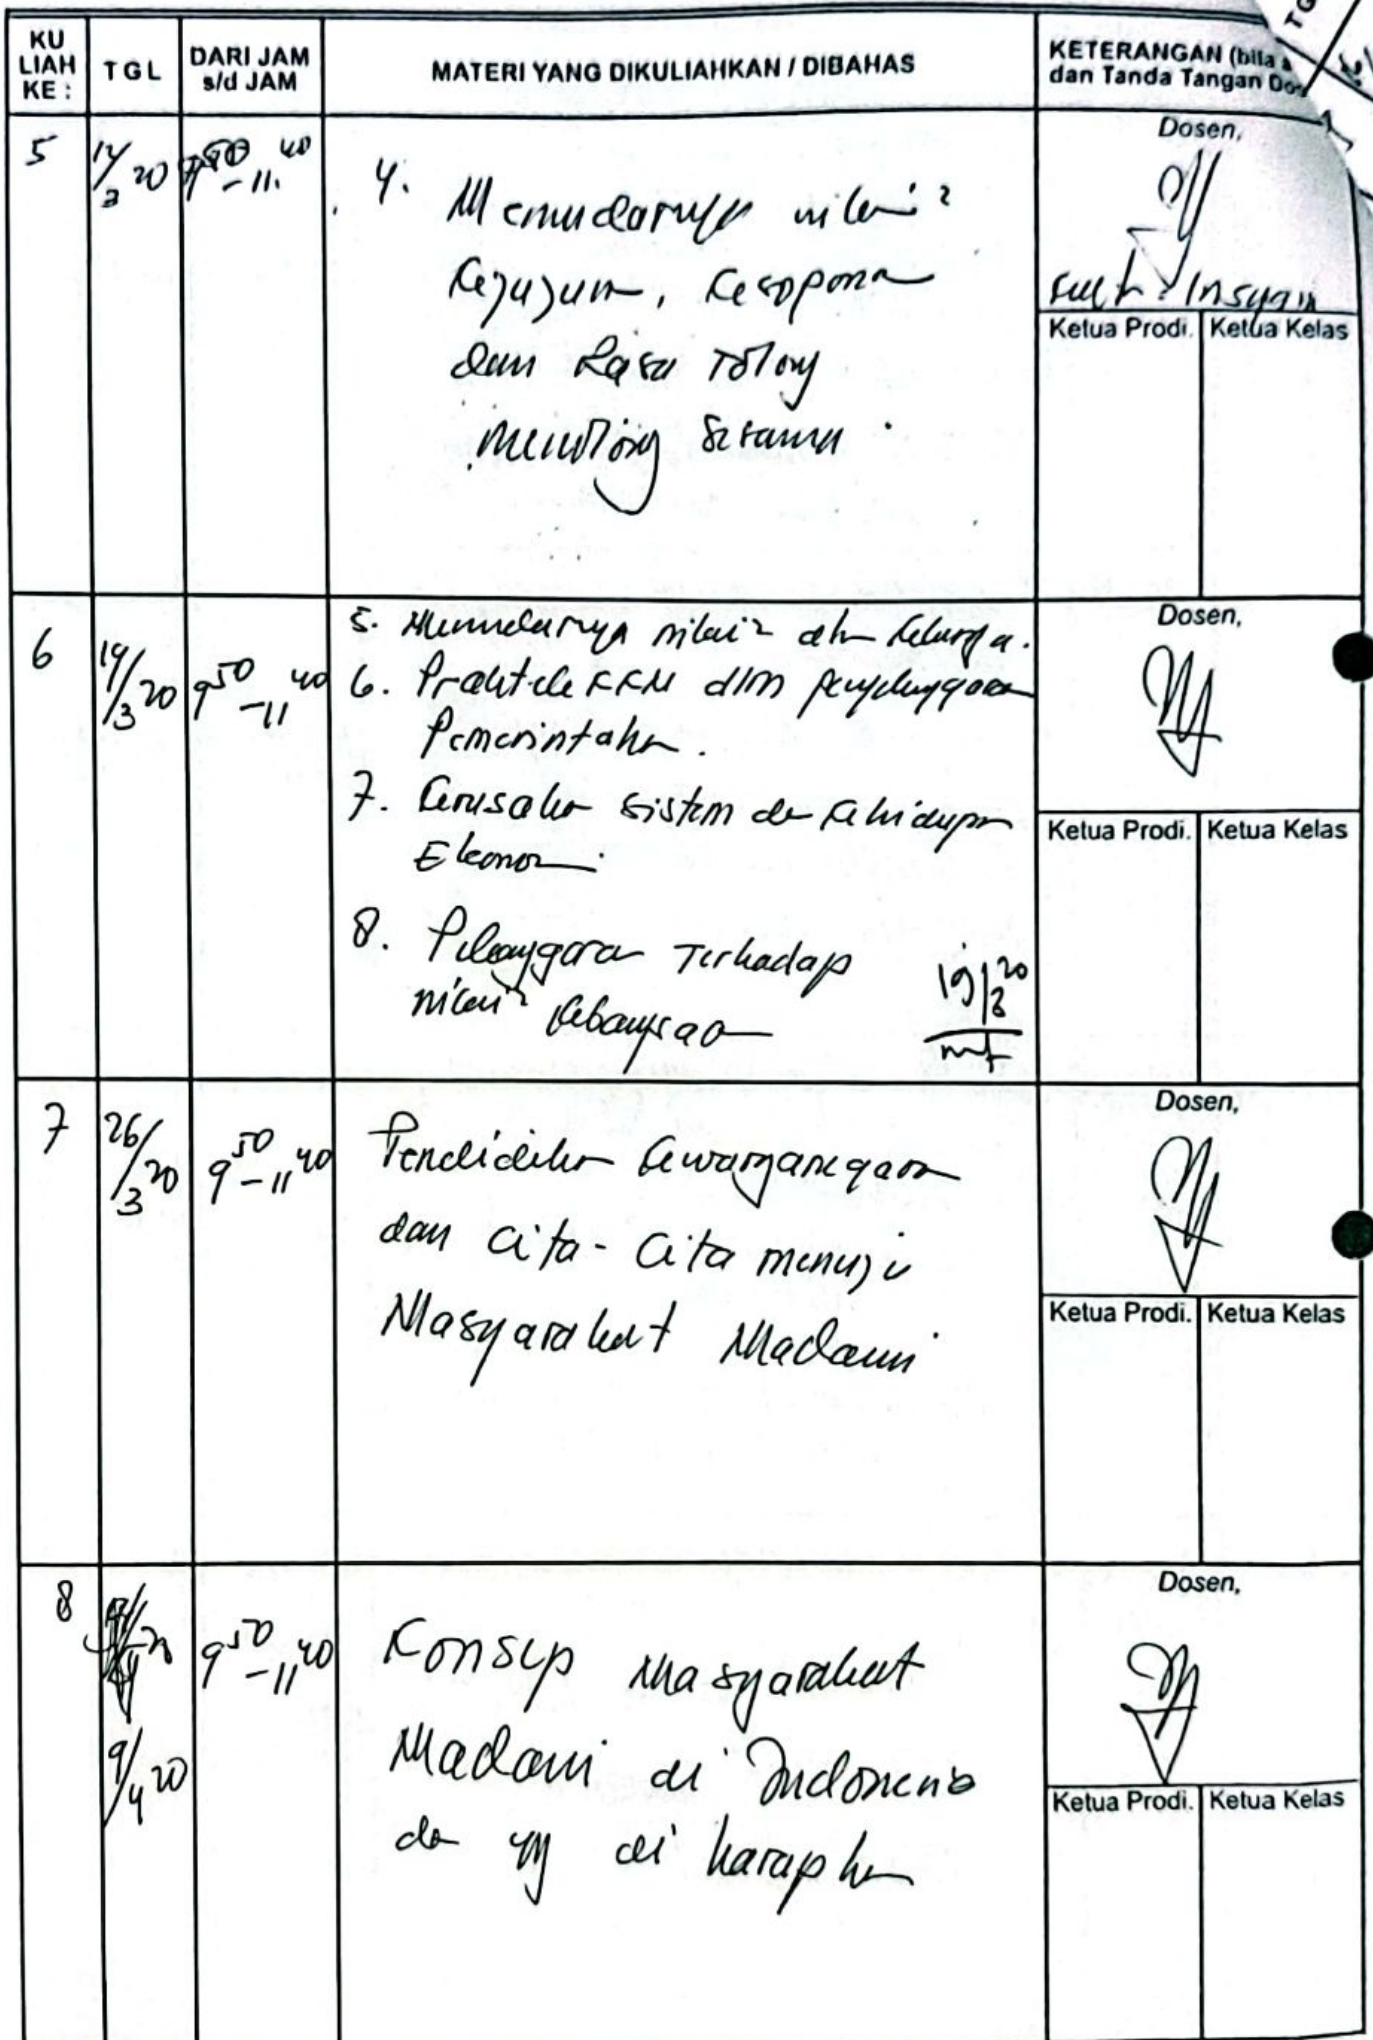 KU LIAH KE :
TGL
DARI JAM s/d JAM
MATERI YANG DIKULIAHKAN / DIBAHAS
KETERANGAN (bila
dan Tanda Tangan Do
5
20
- 11.40
4. Memudarnya nilai²
Kejujuran, Kesopanan
dan Rasa Tolong
menolong Sesama.
Dosen,
Ketua Prodi.
Ketua Kelas
6
19/3 20
9 50 - 11 40
5. Memudarnya nilai² dlm keluarga.
6. Praktek KKN dlm penyelenggaraan
Pemerintahan.
7. Kerusakan sistem dan kehidupan
Ekonomi.
8. Pelanggaran Terhadap
nilai² kebangsaan
19/3 20
Dosen,
Ketua Prodi.
Ketua Kelas
7
26/3 20
9 50 - 11 40
Pendidikan kewarganegaraan
dan cita - cita menuju
Masyarakat Madani
Dosen,
Ketua Prodi.
Ketua Kelas
8
9/4 20
9 50 - 11 40
Konsep Masyarakat
Madani di Indonesia
dan yg di harapkan
Dosen,
Ketua Prodi.
Ketua Kelas